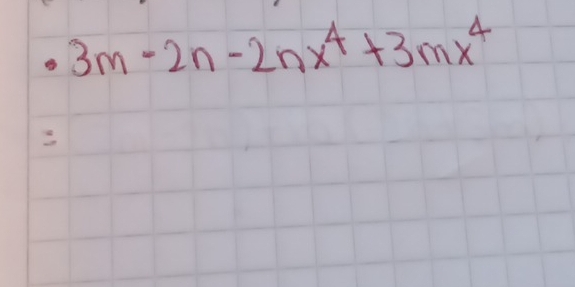 • 3m - 2n - 2nx⁴ + 3mx⁴
=